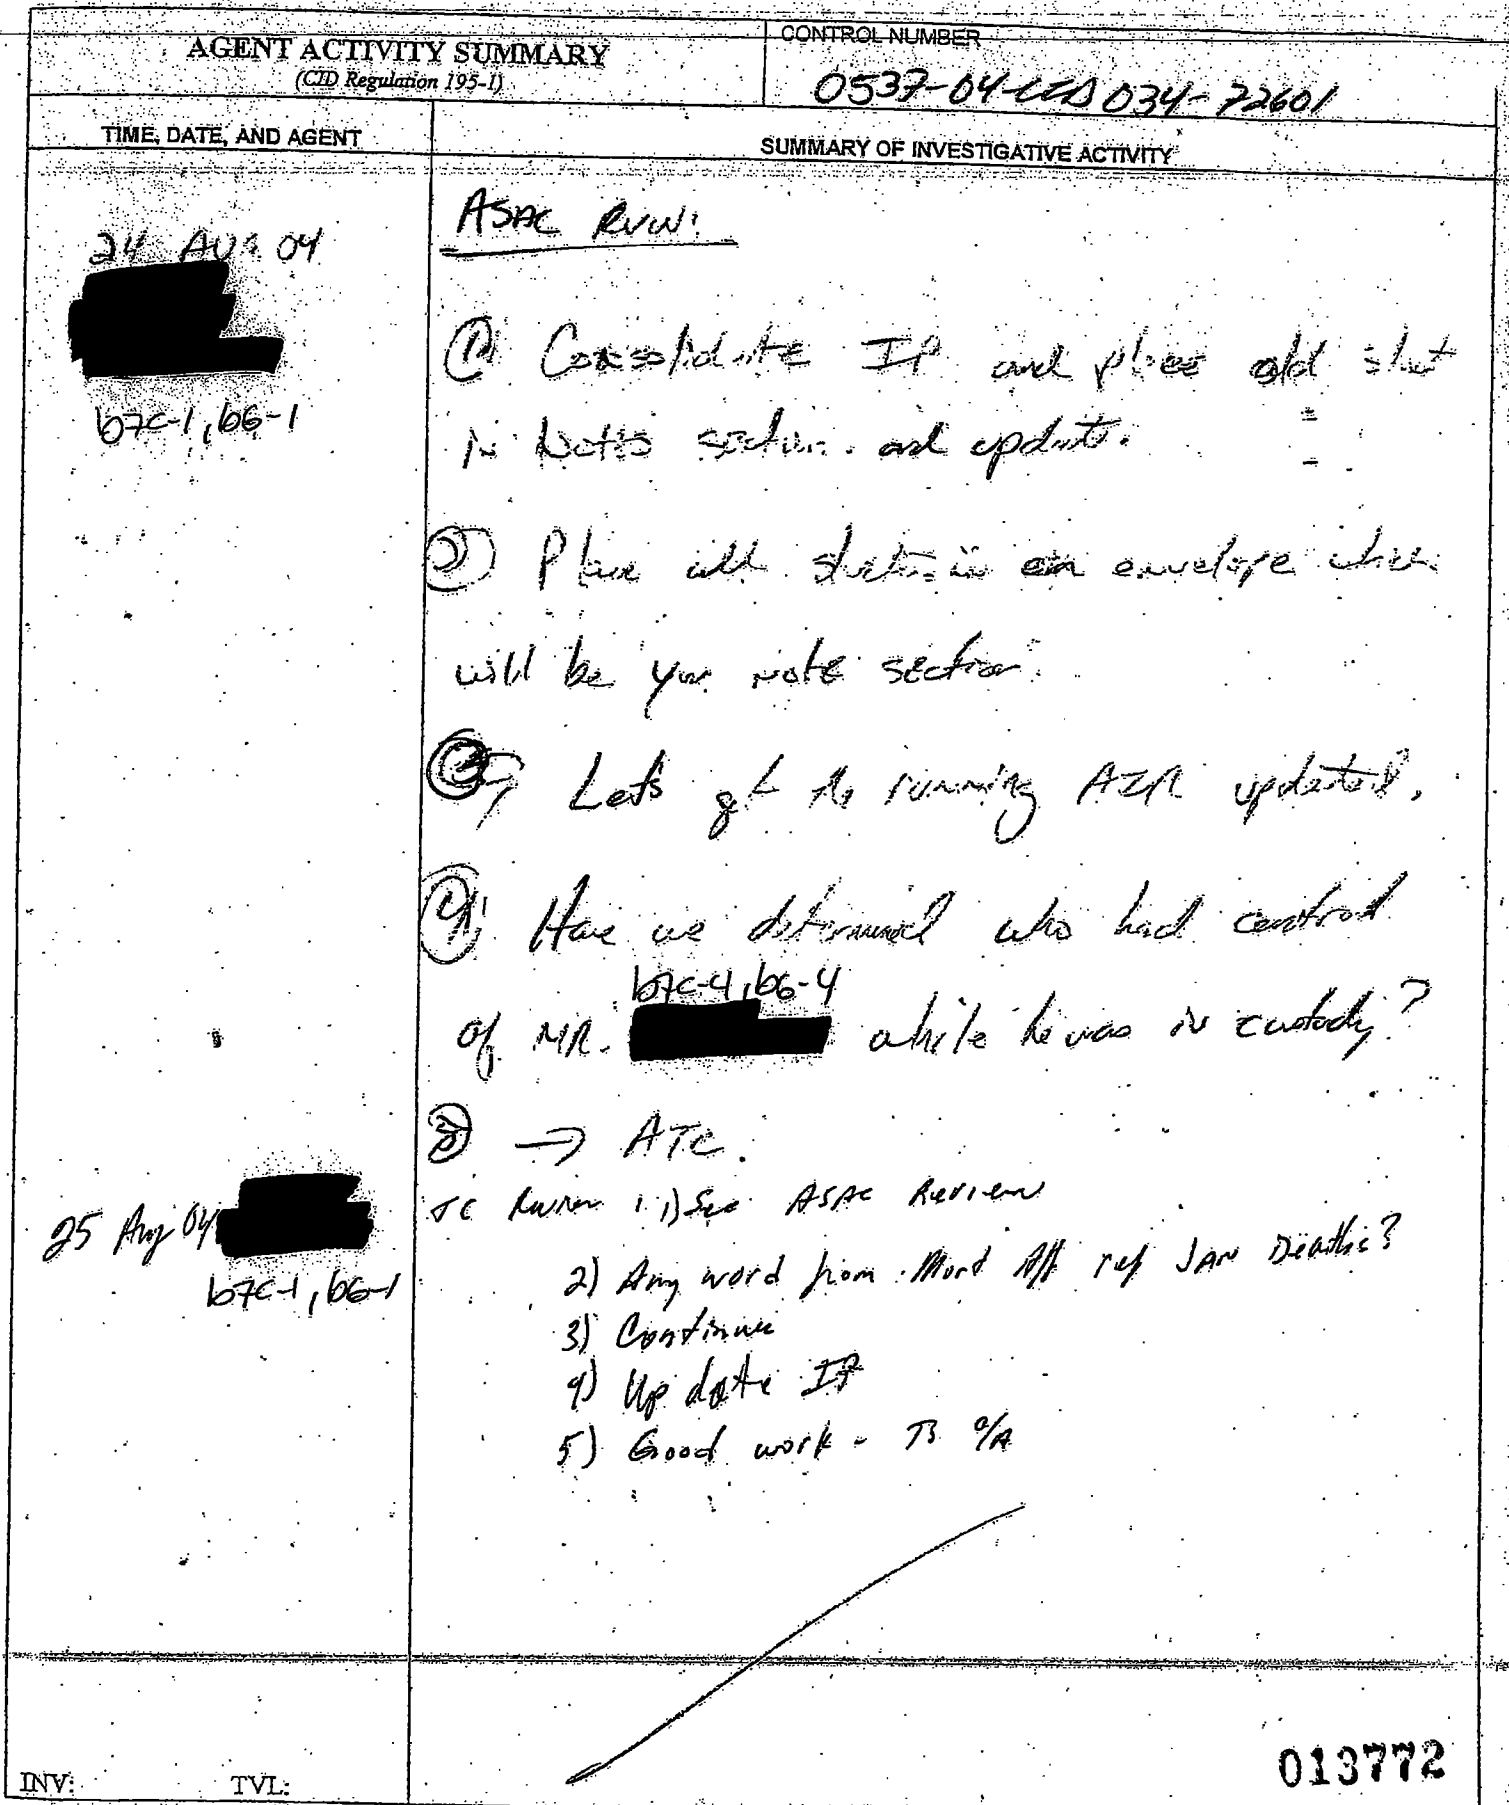 AGENT ACTIVITY SUMMARY
(CID Regulation 195-1)
CONTROL NUMBER
0537-04-CID034-72601
TIME, DATE, AND AGENT
SUMMARY OF INVESTIGATIVE ACTIVITY
24 AUG 04
b7C-1, b6-1
ASAC RVW:
① Consolidate IP and place old sheet
in Notes section and update.
② Place all in an envelope
will be your note section.
③ Let's get the running AIR updated.
④ Have we determined who had control
b7C-4, b6-4
of MR. while he was in custody?
⑤ → ATC.
25 Aug 04
b7C-1, b6-1
TC Review : 1) See ASAC Review
2) Any word from Mort Aff ref JAN Deaths?
3) Continue
4) Update IP
5) Good work -
INV:
TVL:
013772